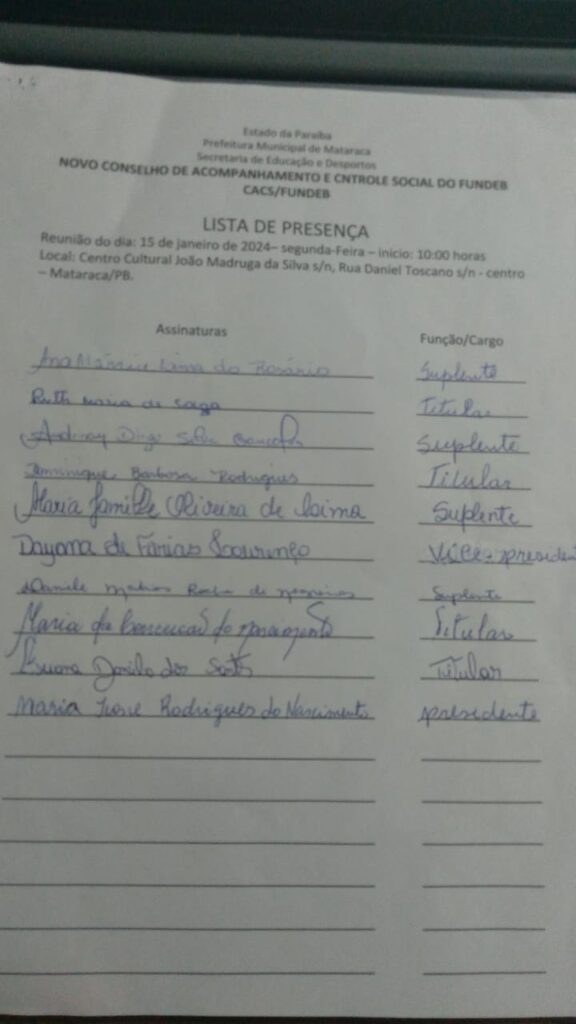 Estado da Paraíba
Prefeitura Municipal de Mataraca
Secretaria de Educação e Desportos
NOVO CONSELHO DE ACOMPANHAMENTO E CNTROLE SOCIAL DO FUNDEB
CACS/FUNDEB
LISTA DE PRESENÇA
Reunião do dia: 15 de janeiro de 2024– segunda-Feira – inicio: 10:00 horas
Local: Centro Cultural João Madruga da Silva s/n, Rua Daniel Toscano s/n - centro
– Mataraca/PB.
Assinaturas Função/Cargo
Ana Lima do Rosário Suplente
Ruth Maria de Titular
Silva Suplente
Barbosa Rodrigues Titular
Maria Jamille Oliveira de Suplente
Dayana de Farias Lourenço Vice-president
Rocha de Suplente
Maria da do Nascimento Titular
Danilo dos Santos Titular
Maria Rodrigues do Nascimento presidente